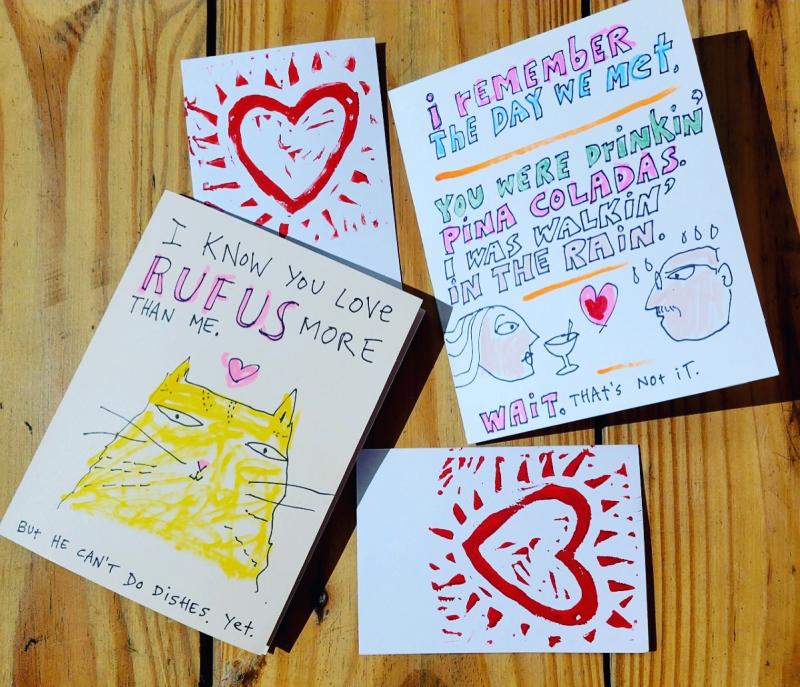 I KNOW YOU LOVE
RUFUS MORE
THAN ME.
BUt HE CAN'T DO DISHES. Yet.
i REMEMbER
THE DAY WE Met.
YOU WERE DRiNKiN'
PiNA COLADAS.
I WAS WALKIN'
iN THE RAiN.
WAiT. THAT'S NOT iT.